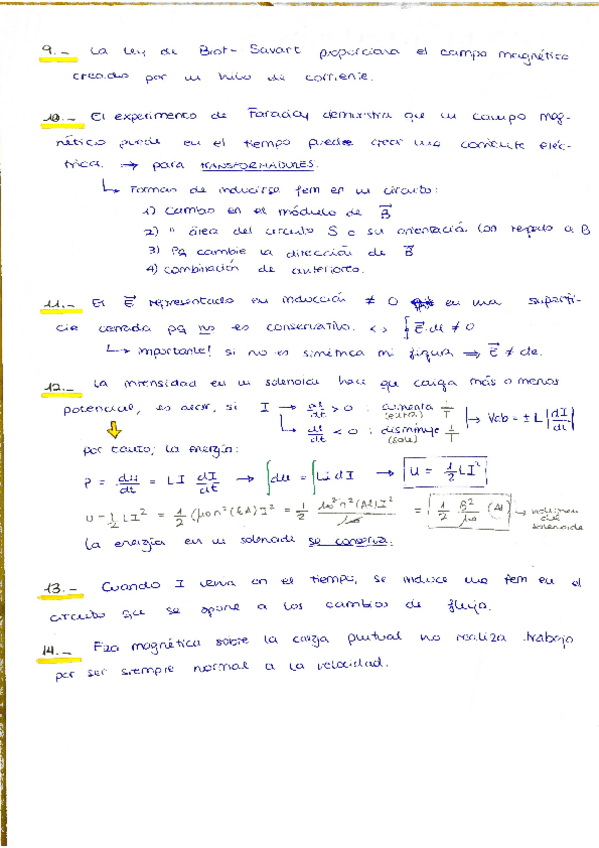 9.- La ley de Biot-Savart proporciona el campo magnético
creado por un hilo de corriente.
10.- El experimento de Faraday demuestra que un campo mag-
nético puede en el tiempo puede crear una corriente eléc-
trica. → para TRANSFORMADORES.
↳ Formas de inducirse fem en un circuito:
1) cambio en el módulo de B⃗
2) " área del circuito S o su orientación con respecto a B
3) Pq cambie la dirección de B⃗
4) combinación de anteriores.
11.- El E⃗ representado en inducción ≠ 0 en una superfi-
cie cerrada pq no es conservativo. <> ∫ E⃗·dl ≠ 0
↳ importante! si no es simétrica mi figura ⇒ E⃗ ≠ de.
12.- La intensidad en un solenoide hace que caiga más o menos
potencial, es decir, si I → dI/dt > 0 : aumenta I
↳ dI/dt < 0 : disminuye I
↳ Vab = ± L |dI/dt|
por tanto, la energía:
P = du/dt = LI dI/dt → ∫du = ∫LI dI → U = 1/2 LI²
U = 1/2 LI² = 1/2 (μ₀n²(lA)I² = 1/2 μ₀²n²(Al)I²/μ₀ = 1/2 B²/μ₀ (Al) → volumen del solenoide
La energía en un solenoide se conserva.
13.- Cuando I varía en el tiempo, se induce una fem en el
circuito que se opone a los cambios de flujo.
14.- Fza magnética sobre la carga puntual no realiza trabajo
por ser siempre normal a la velocidad.